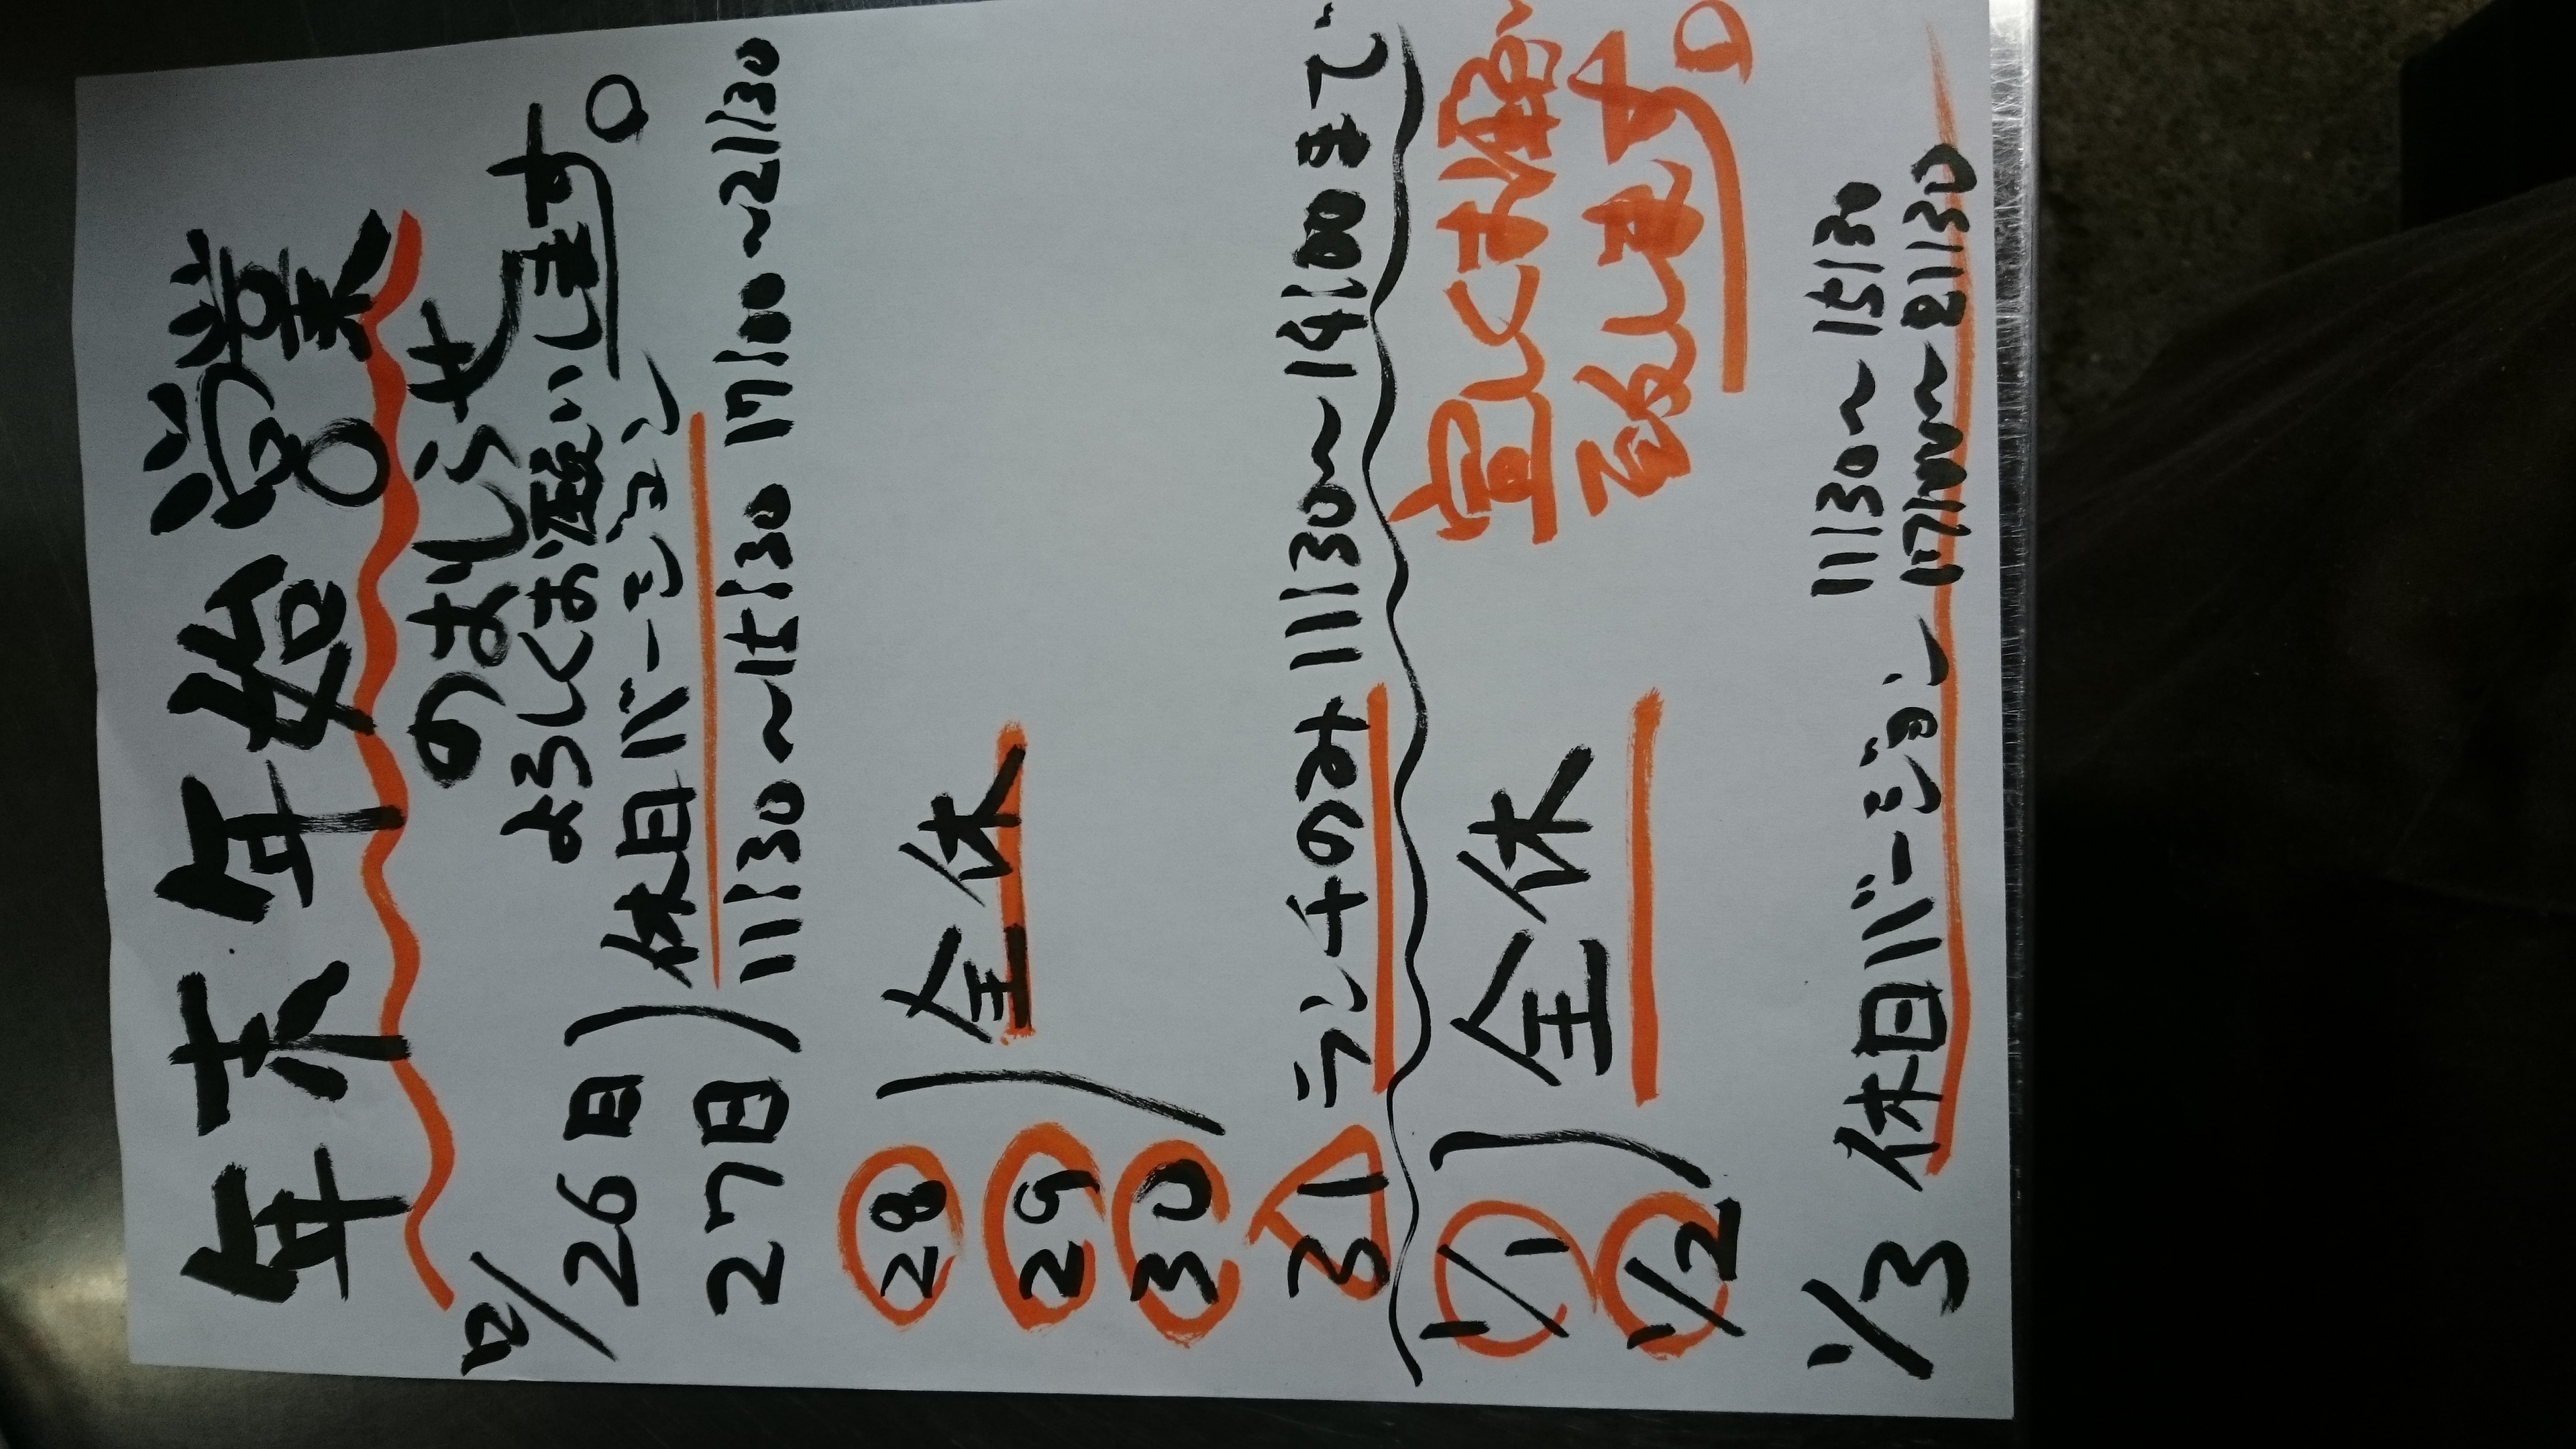 年末年始営業
のおしらせ
よろしくお願いします。
12/26日 休日バーション
27日 11:30~15:30 17:00~21:30
28
29 全休
30
31 ランチのみ 11:30~14:00まで
宜しくお願い
致します。
1/1 全休
1/2
11:30~15:30
1/3 休日バージョン 17:00~21:30